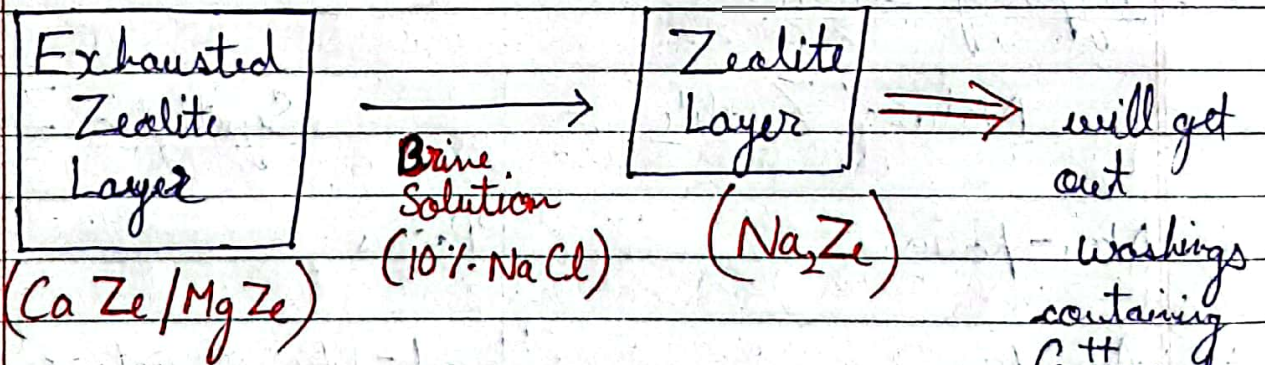 Exhausted
Zeolite
Layer
(Ca Ze/Mg Ze)
Brine
Solution
(10% NaCl)
Zeolite
Layer
(Na₂Ze)
will get
out
- washings
containing